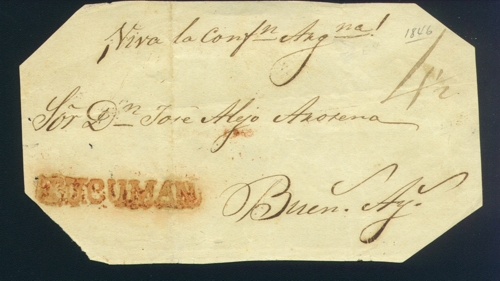 ¡Viva la Confn Argna!
1846
4 1/2
Sōr Dn José Alejo Arosena
TUCUMAN
Buens. Ays.